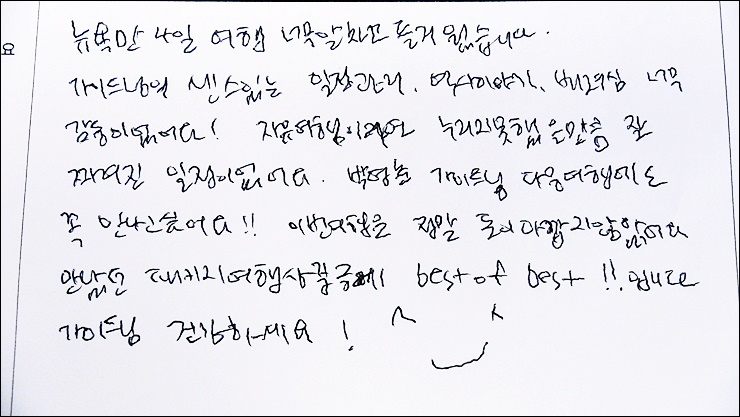 뉴욕만 4일 여행 너무알차고 즐거웠습니다.
가이드님의 센스있는 일정관리, 역사이야기, 배려심 너무
감동이었어요! 자유여행이라면 누리지못했을만큼 잘
짜여진 일정이었어요. 박영 가이드님 다음여행에도
꼭 만나고싶어요!! 이번여행은 정말 돈이아깝지않았어요
패키지여행상품중에 best of best !! 입니다
가이드님 건강하세요!
요